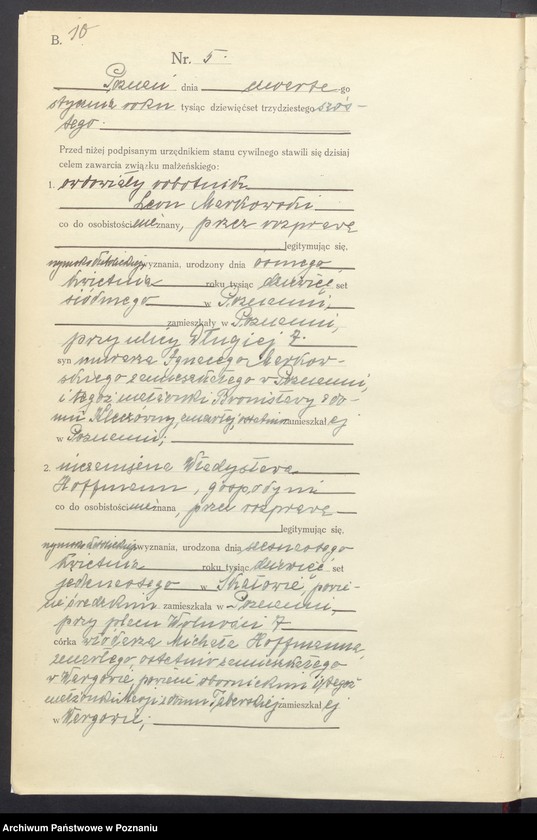 B. 10
Nr. 5.
Poznań dnia czwartego
stycznia roku tysiąc dziewięćset trzydziestego szós-
tego.
Przed niżej podpisanym urzędnikiem stanu cywilnego stawili się dzisiaj
celem zawarcia związku małżeńskiego:
1. owdowiały robotnik
Leon Markowski
co do osobistości nieznany, przez rozprawę
legitymując się,
rzymsko katolickiego wyznania, urodzony dnia ósmego
kwietnia roku tysiąc dziewięć set
siódmego w Poznaniu,
zamieszkały w Poznaniu,
przy ulicy Długiej 7.
syn murarza Ignacego Markow-
skiego zamieszkałego w Poznaniu,
i tegoż małżonki Bronisławy z do-
mu zmarłej, ostatnio zamieszkałej
w Poznaniu;
2. niezamężna Władysława
Hoffmann, gospodyni
co do osobistości nieznana, przez rozprawę
legitymując się,
rzymsko katolickiego wyznania, urodzona dnia szesnastego
kwietnia roku tysiąc dziewięć set
jedenastego w powie-
cie średzkim zamieszkała w Poznaniu,
przy placu Wolności 7
córka włodarza Michała Hoffmanna,
zmarłego, ostatnio zamieszkałego
w Wargowie, powiecie obornickim i tegoż
małżonki z domu zamieszkałej
w Wargowie;
Archiwum Państwowe w Poznaniu